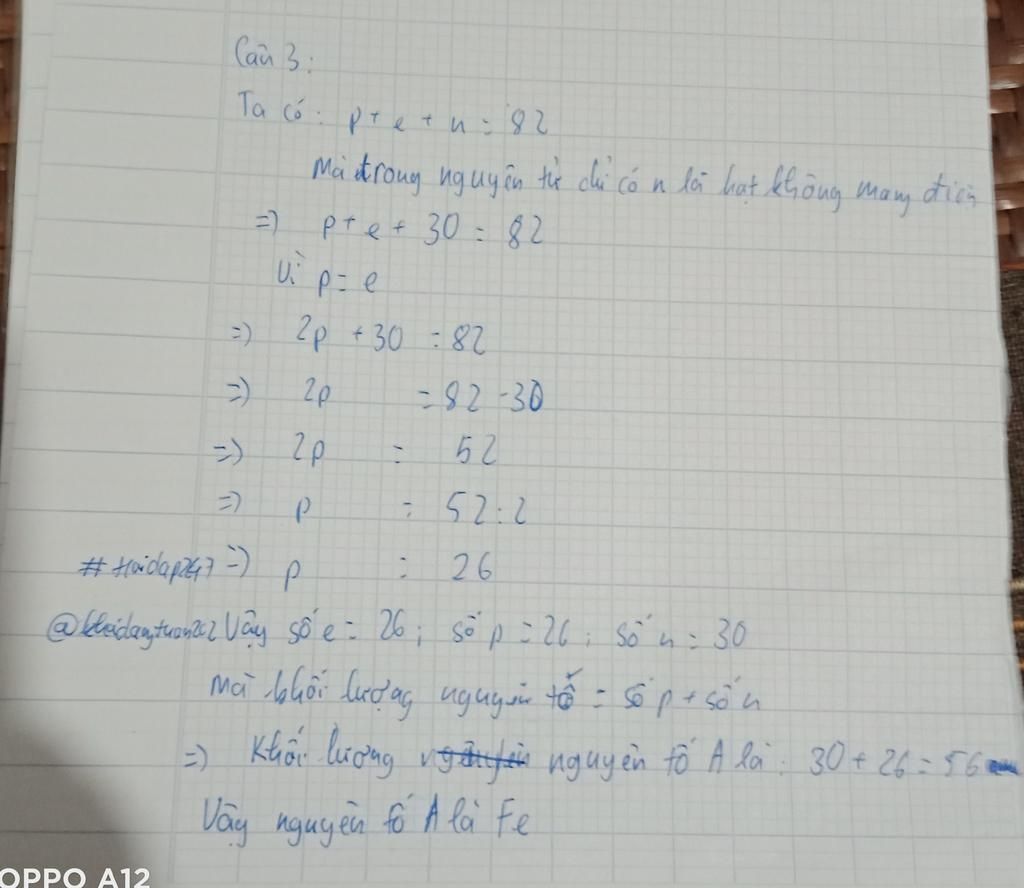 Câu 3:
Ta có: p + e + n = 82
Mà trong nguyên tử chỉ có n là hạt không mang điện
=> p + e + 30 = 82
Vì p = e
=> 2p + 30 = 82
=> 2p = 82 - 30
=> 2p = 52
=> p = 52 : 2
#Hoidap247 => p = 26
Vậy số e = 26; số p = 26; số n = 30
Mà khối lượng nguyên tố = số p + số n
=> Khối lượng nguyên tố A là: 30 + 26 = 56
Vậy nguyên tố A là Fe
OPPO A12